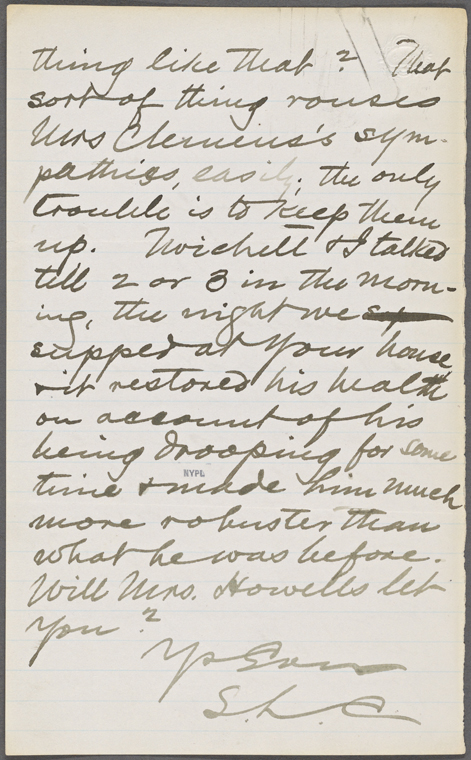 thing like that? That
sort of thing rouses
Mrs Clemens's sym-
pathies, easily; the only
trouble is to keep them
up. Twichell & I talked
till 2 or 3 in the morn-
ing, the night we
supped at your house
& it restored his health
on account of his
being drooping for some
time & made him much
NYPL
more robuster than
what he was before.
Will Mrs. Howells let
you?
Yrs Ever
S. L. C.